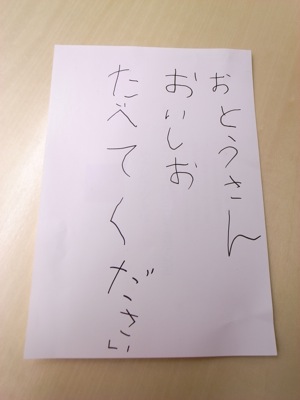 おとうさん
おいしお
たべてください